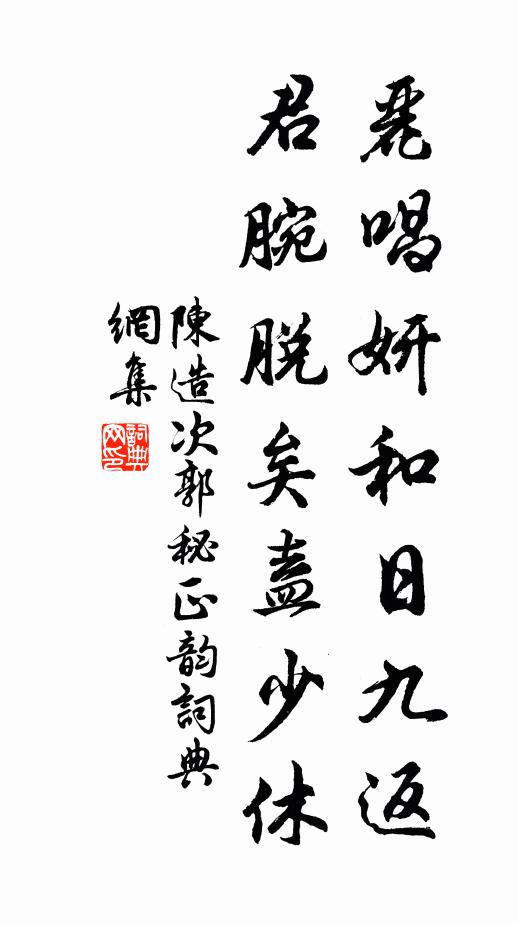 麗唱妍和日九返
君腕脱矣盍少休
陳造次郭秘正韵詞典
網集
詞典網印